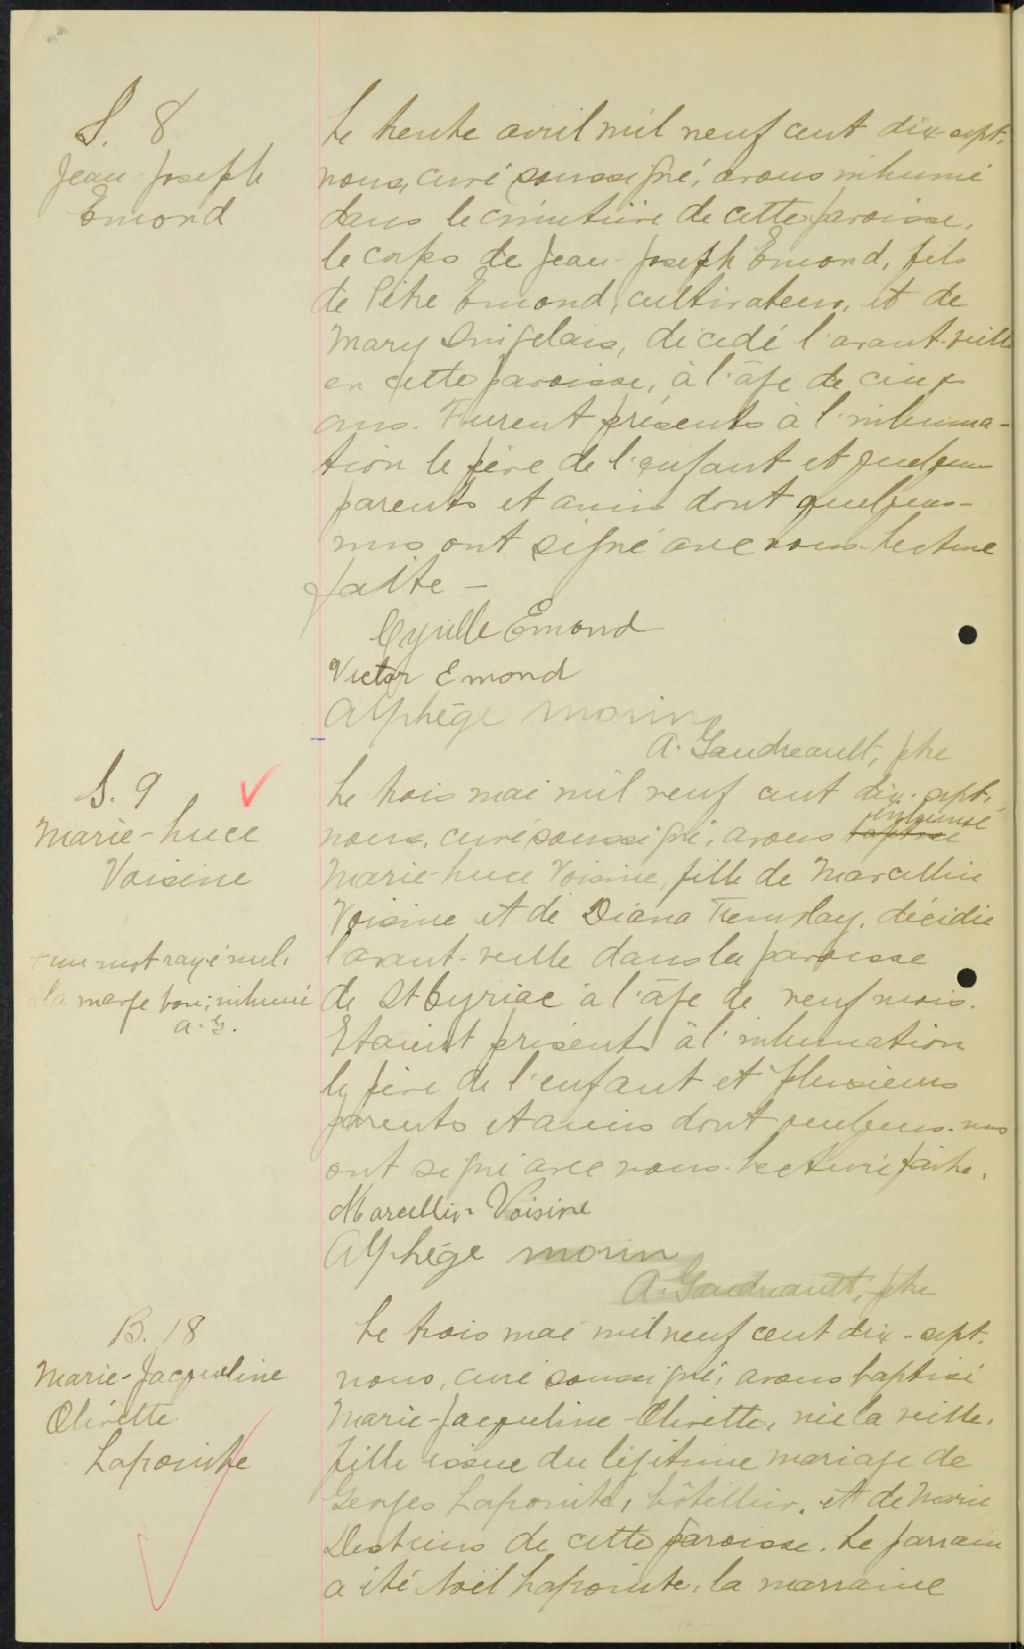 S. 8
Jean-Joseph
Emond
Le trente avril mil neuf cent dix-sept,
nous, curé soussigné, avons inhumé
dans le cimetière de cette paroisse,
le corps de Jean-Joseph Emond, fils
de Pitre Emond, cultivateur, et de
Mary décédé l'avant-veille
en cette paroisse, à l'âge de cinq
ans. Furent présents à l'inhuma-
tion le père de l'enfant et quelques
parents et amis dont quelques-
uns ont signé avec nous. Lecture
faite -
Cyrille Emond
Victor Emond
Alphége morin
A. Gaudreault, ptre
S. 9
Marie-Luce
Voisine
+ un mot rayé nul.
à la marge bon: inhumé
A. G.
Le trois mai mil neuf cent dix-sept,
nous, curé soussigné, avons baptisé inhumé
Marie-Luce Voisine, fille de Marcellin
Voisine et de Diana Tremblay, décédée
l'avant-veille dans la paroisse
de St Cyriac à l'âge de neuf mois.
Etaient présents à l'inhumation
le père de l'enfant et plusieurs
parents et amis dont quelques-uns
ont signé avec nous. Lecture faite.
Marcellin Voisine
Alphége morin
A. Gaudreault, ptre
B. 18
Marie-Jacqueline
Olivette
Lapointe
Le trois mai mil neuf cent dix-sept,
nous, curé soussigné, avons baptisé
Marie-Jacqueline-Olivette, née la veille,
fille issue du légitime mariage de
Georges Lapointe, hôtellier, et de Marie
de cette paroisse. Le parrain
a été Noël Lapointe, la marraine